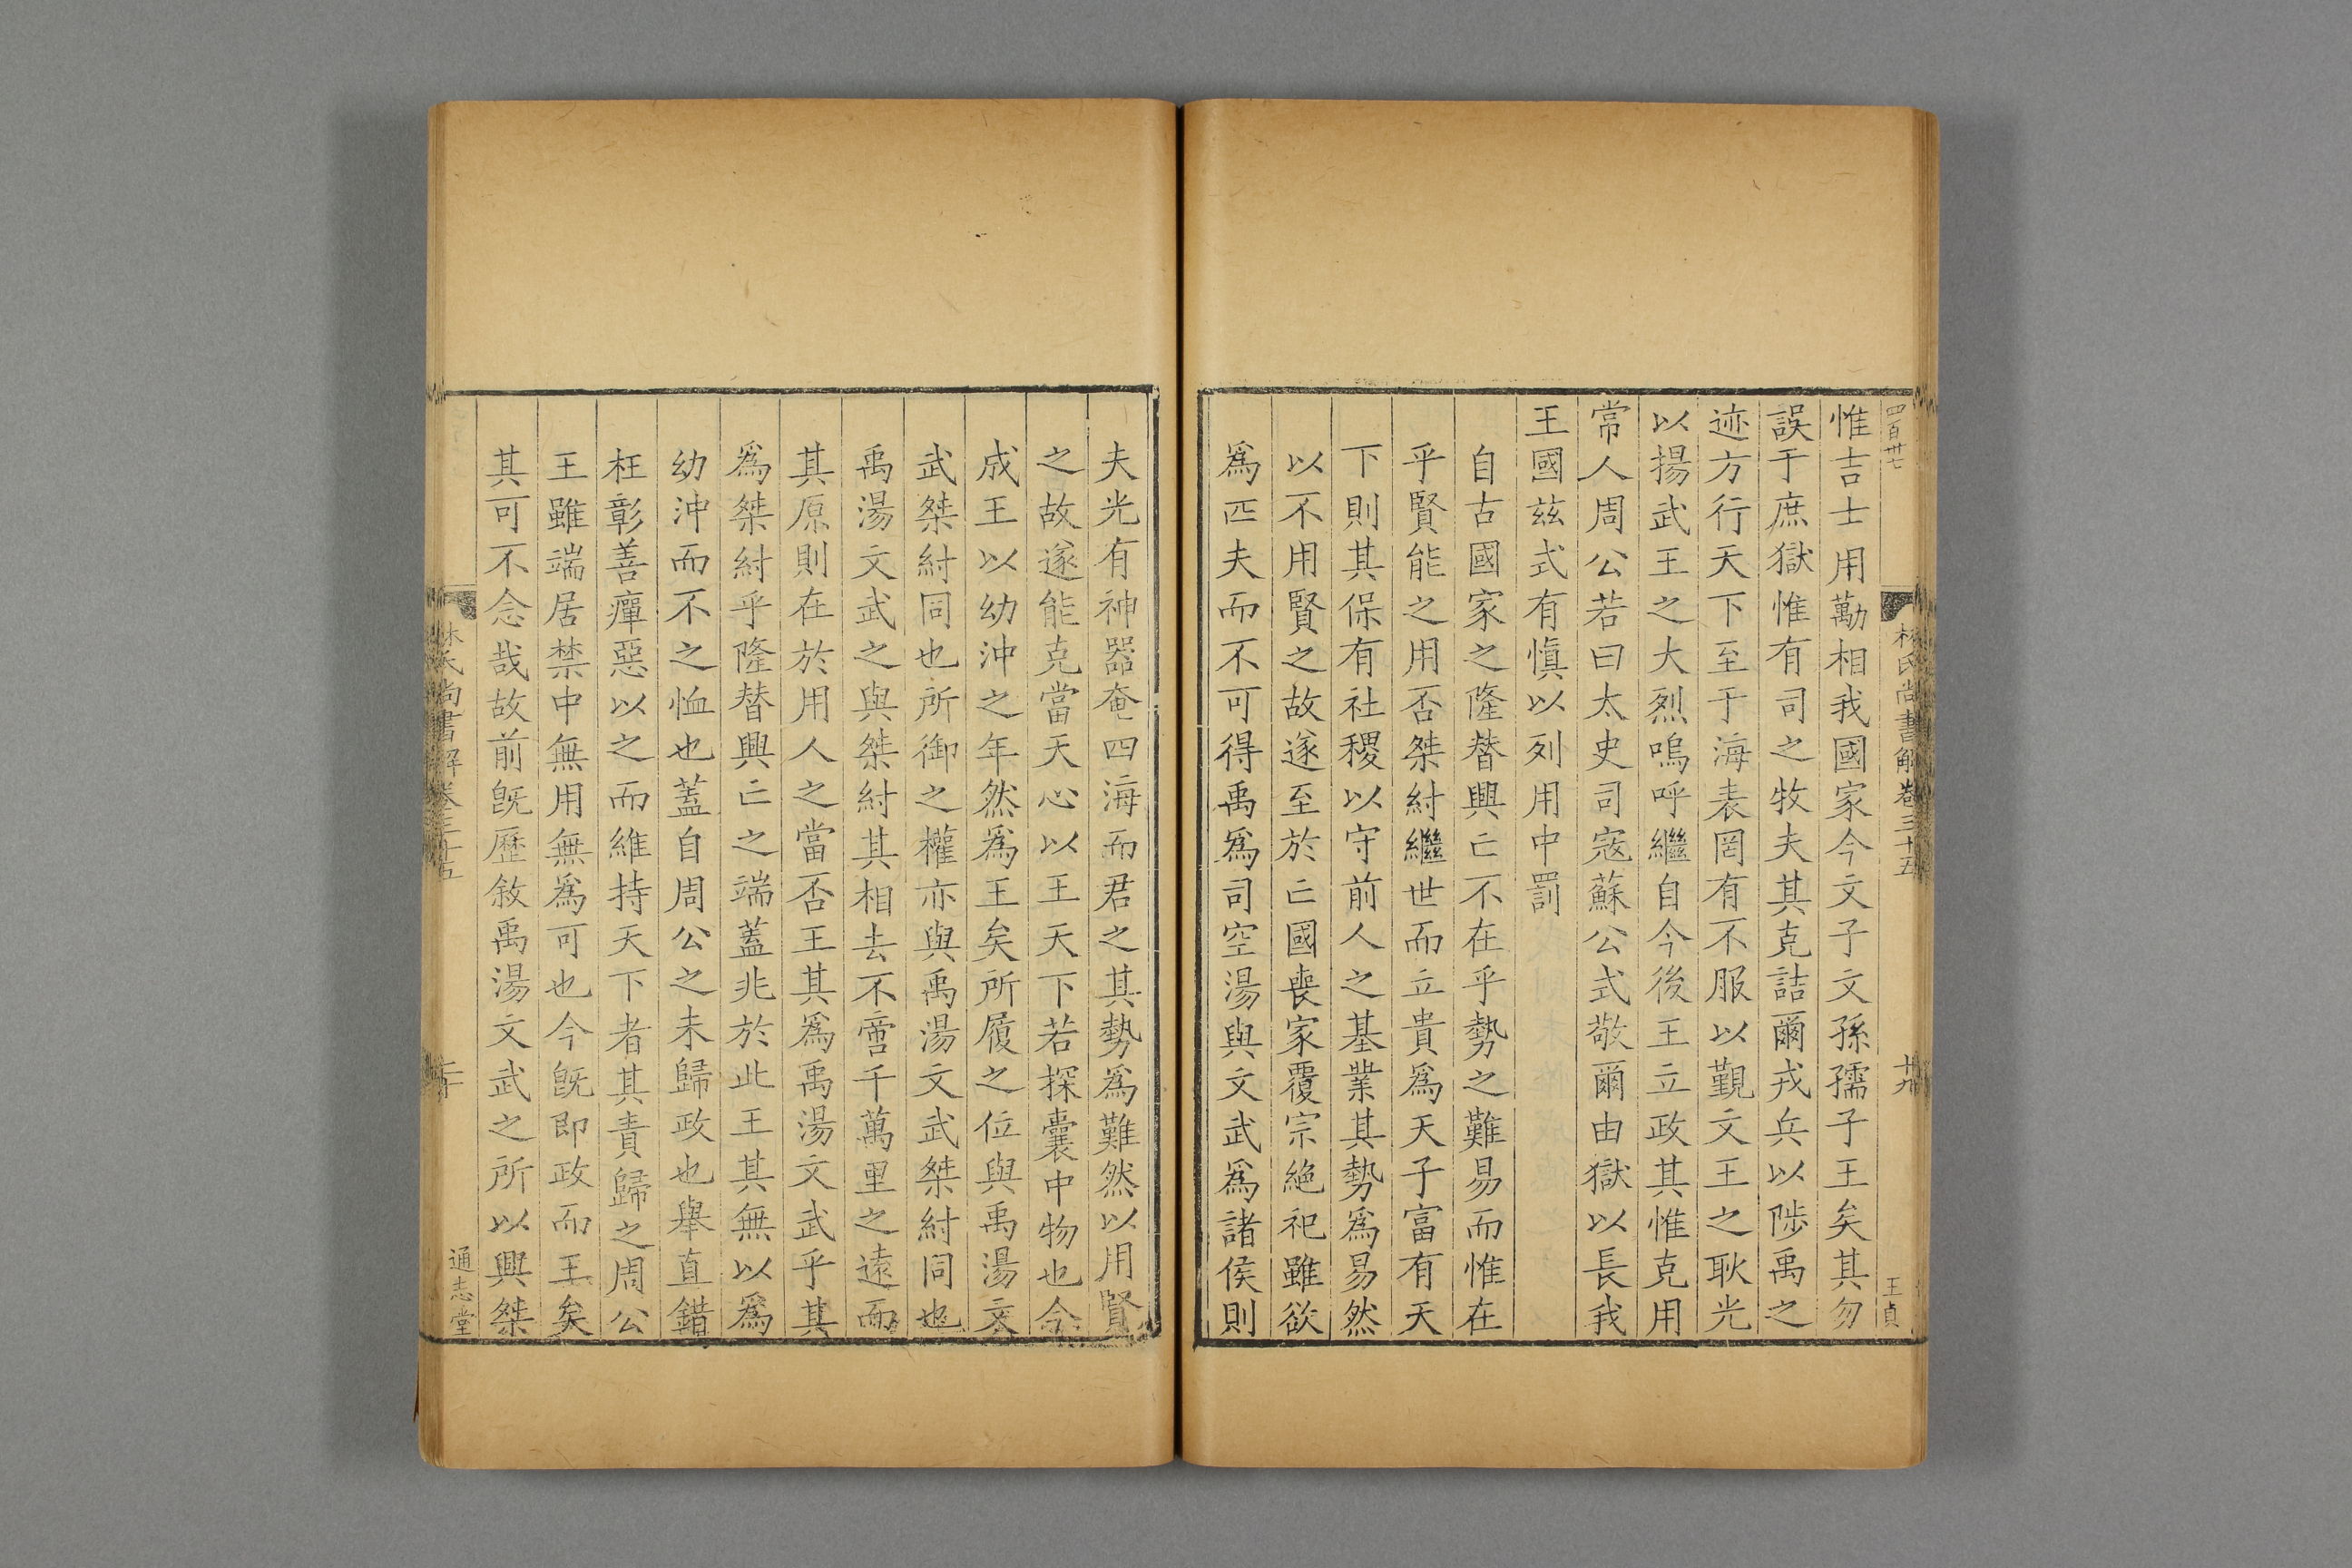 四百卅七
林氏尚書解卷三十五
十九
王貞
惟吉士用勱相我國家今文子文孫孺子王矣其勿
誤于庶獄惟有司之牧夫其克詰爾戎兵以陟禹之
迹方行天下至于海表罔有不服以覲文王之耿光
以揚武王之大烈嗚呼繼自今後王立政其惟克用
常人周公若曰太史司寇蘇公式敬爾由獄以長我
王國茲式有慎以列用中罰
自古國家之隆替興亡不在乎勢之難易而惟在
乎賢能之用否桀紂繼世而立貴為天子富有天
下則其保有社稷以守前人之基業其勢為易然
以不用賢之故遂至於亡國喪家覆宗絕祀雖欲
為匹夫而不可得禹為司空湯與文武為諸侯則
夫光有神器奄四海而君之其勢為難然以用賢
之故遂能克當天心以王天下若探囊中物也今
成王以幼沖之年然為王矣所履之位與禹湯文
武桀紂同也所御之權亦與禹湯文武桀紂同也
禹湯文武之與桀紂其相去不啻千萬里之遠而
其原則在於用人之當否王其為禹湯文武乎其
為桀紂乎隆替興亡之端蓋兆於此王其無以為
幼沖而不之恤也蓋自周公之未歸政也舉直錯
枉彰善癉惡以之而維持天下者其責歸之周公
王雖端居禁中無用無為可也今既即政而王矣
其可不念哉故前既歷敘禹湯文武之所以興桀
林氏尚書解卷三十五
二十
通志堂